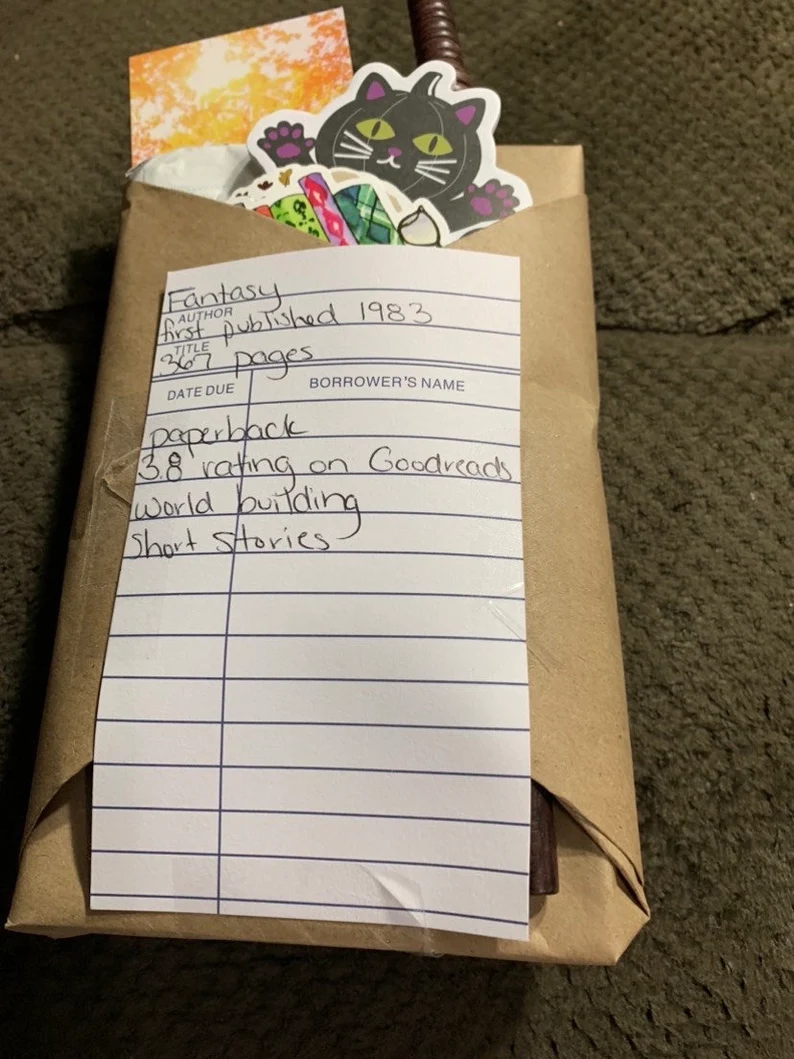 Fantasy
AUTHOR
first published 1983
TITLE
367 pages
DATE DUE BORROWER'S NAME
paperback
3.8 rating on Goodreads
world building
Short Stories